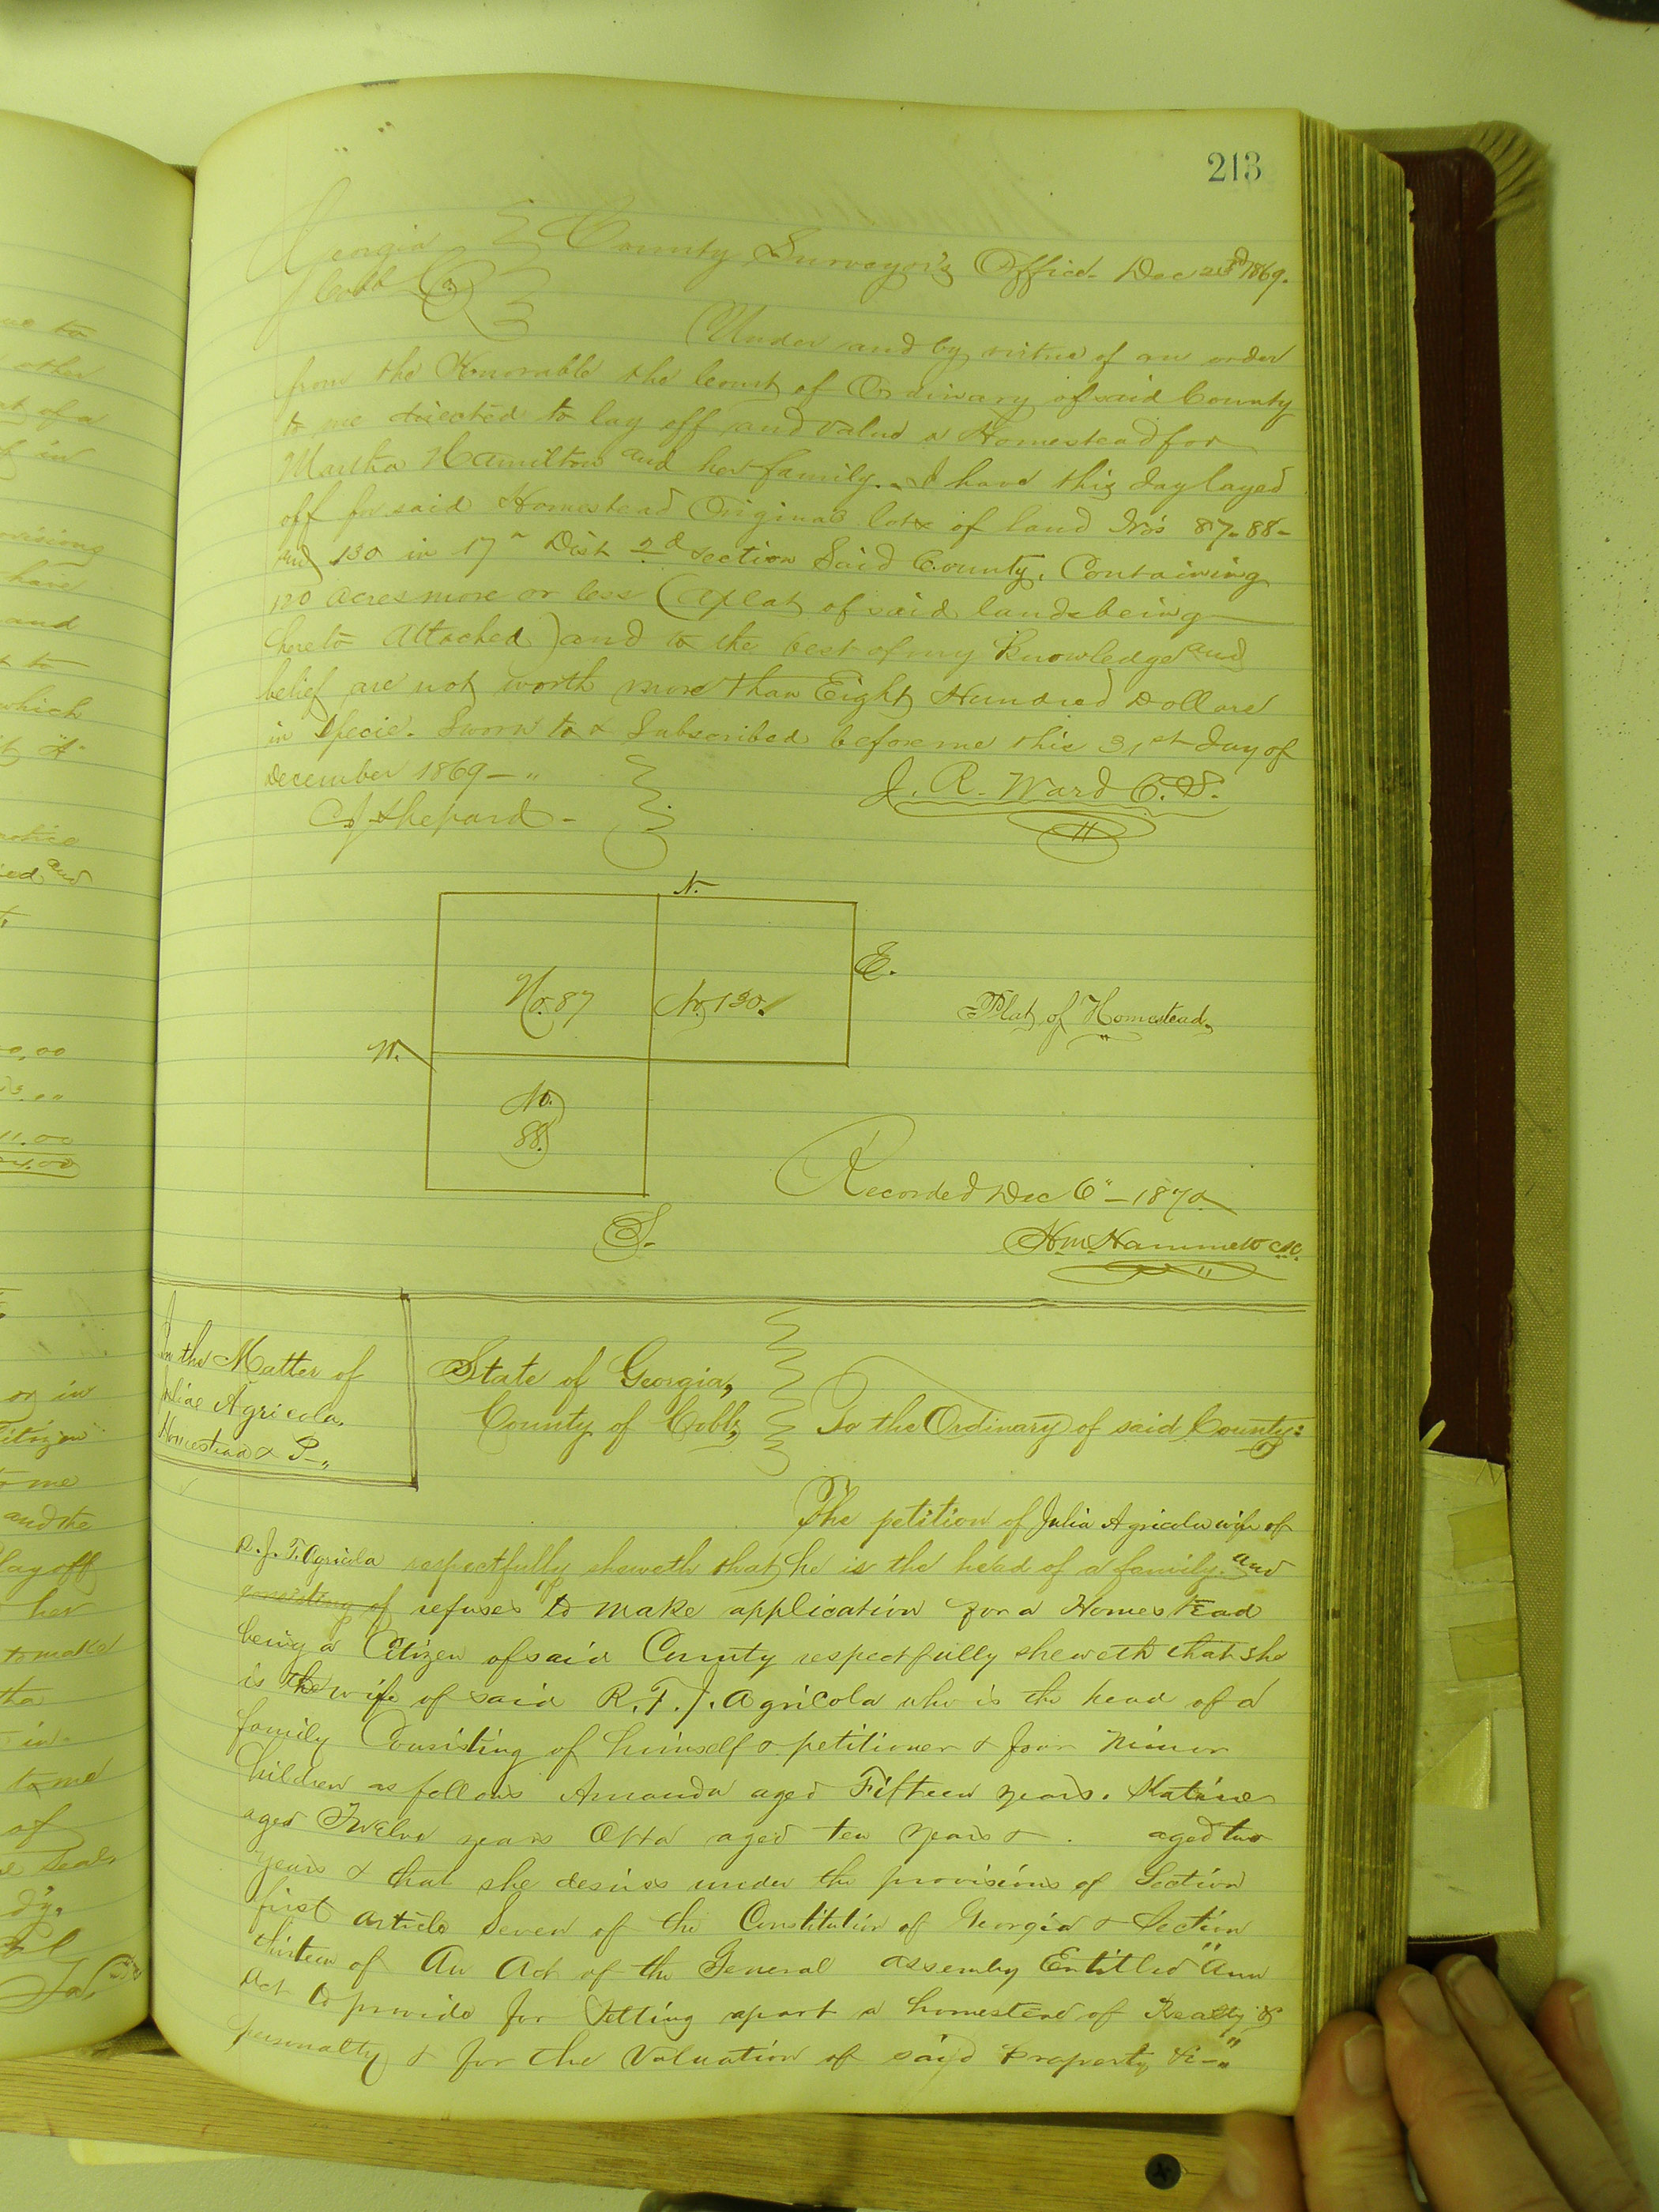 213
Georgia County Surveyor's Office Dec 23rd 1869.
Cobb Co.
Under and by virtue of an order
from the Honorable the Court of Ordinary of said County
to me directed to lay off and value a Homestead for
Martha Hamilton and her family. I have this day layed
off for said Homestead Original lots of land No's 87-88-
and 130 in 17" Dist 2d section Said County, Containing
120 acres more or less (a plat of said lands being
hereto attached) and to the best of my Knowledge and
belief are not worth more than Eight Hundred Dollars
in Specie. Sworn to & Subscribed before me this 31st day of
December 1869 - "
J. R. Ward C.S.
Shepard -
N.
E.
No. 87
No. 130.
Plat of Homestead.
W.
No.
88.
Recorded Dec 6" - 1870
S.
Hm. Hammett
In the Matter of
Juliae Agricola.
Homestead & P-"
State of Georgia,
County of Cobb,
To the Ordinary of said County:
The petition of Julia Agricola wife of
R. J. T. Agricola respectfully sheweth that he is the head of a family. and
consisting of refuses to make application for a Homestead
being a Citizen of said County respectfully sheweth that she
is the wife of said R. T. J. Agricola who is the head of a
family Consisting of himself & petitioner & four minor
Children as follows Amanda aged Fifteen years.
aged Twelve years Otto aged ten years & . aged two
years & that she desires under the provisions of Section
first article Seven of the Constitution of Georgia & Section
thirteen of An Act of the General assembly Entitled "Ann
Act to provide for Setting apart a homestead of Realty &
personalty & for the Valuation of said property &c-"
ne to
other
of a
in
ovisions
have
and
to
which
notice
and
00.00
11.00
or in
Citizen
to me
and the
lay off
her
to make
in
to me
of
Seal,